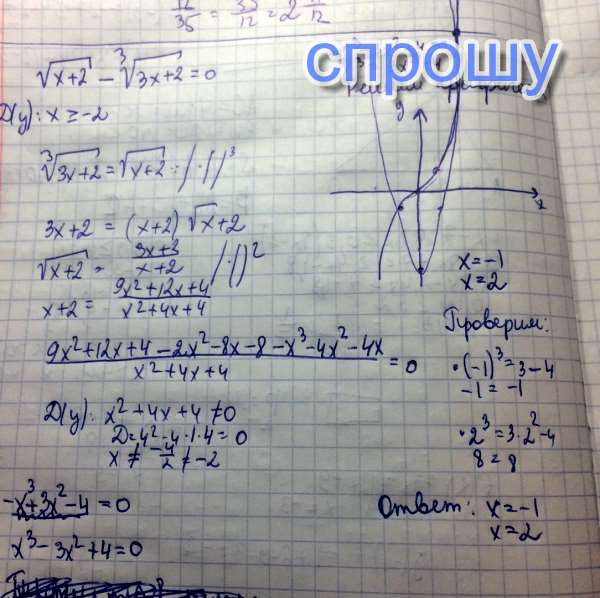 12/35 = 35/12 = 2 11/12
спрошу
√x+2 - ³√3x+2 = 0
D(y): x ≥ -2
³√3x+2 = √x+2 /·()³
3x+2 = (x+2) √x+2
√x+2 = 3x+2/x+2 /·()²
x+2 = 9x²+12x+4/x²+4x+4
9x²+12x+4-2x²-8x-8-x³-4x²-4x/x²+4x+4 = 0
D(y): x²+4x+4 ≠ 0
D=4²-4·1·4=0
x ≠ -4/2 ≠ -2
-x³+3x²-4 = 0
x³-3x²+4=0
y
x
x=-1
x=2
Проверим:
·(-1)³=3-4
-1=-1
·2³=3·2²-4
8=8
Ответ: x=-1
x=2